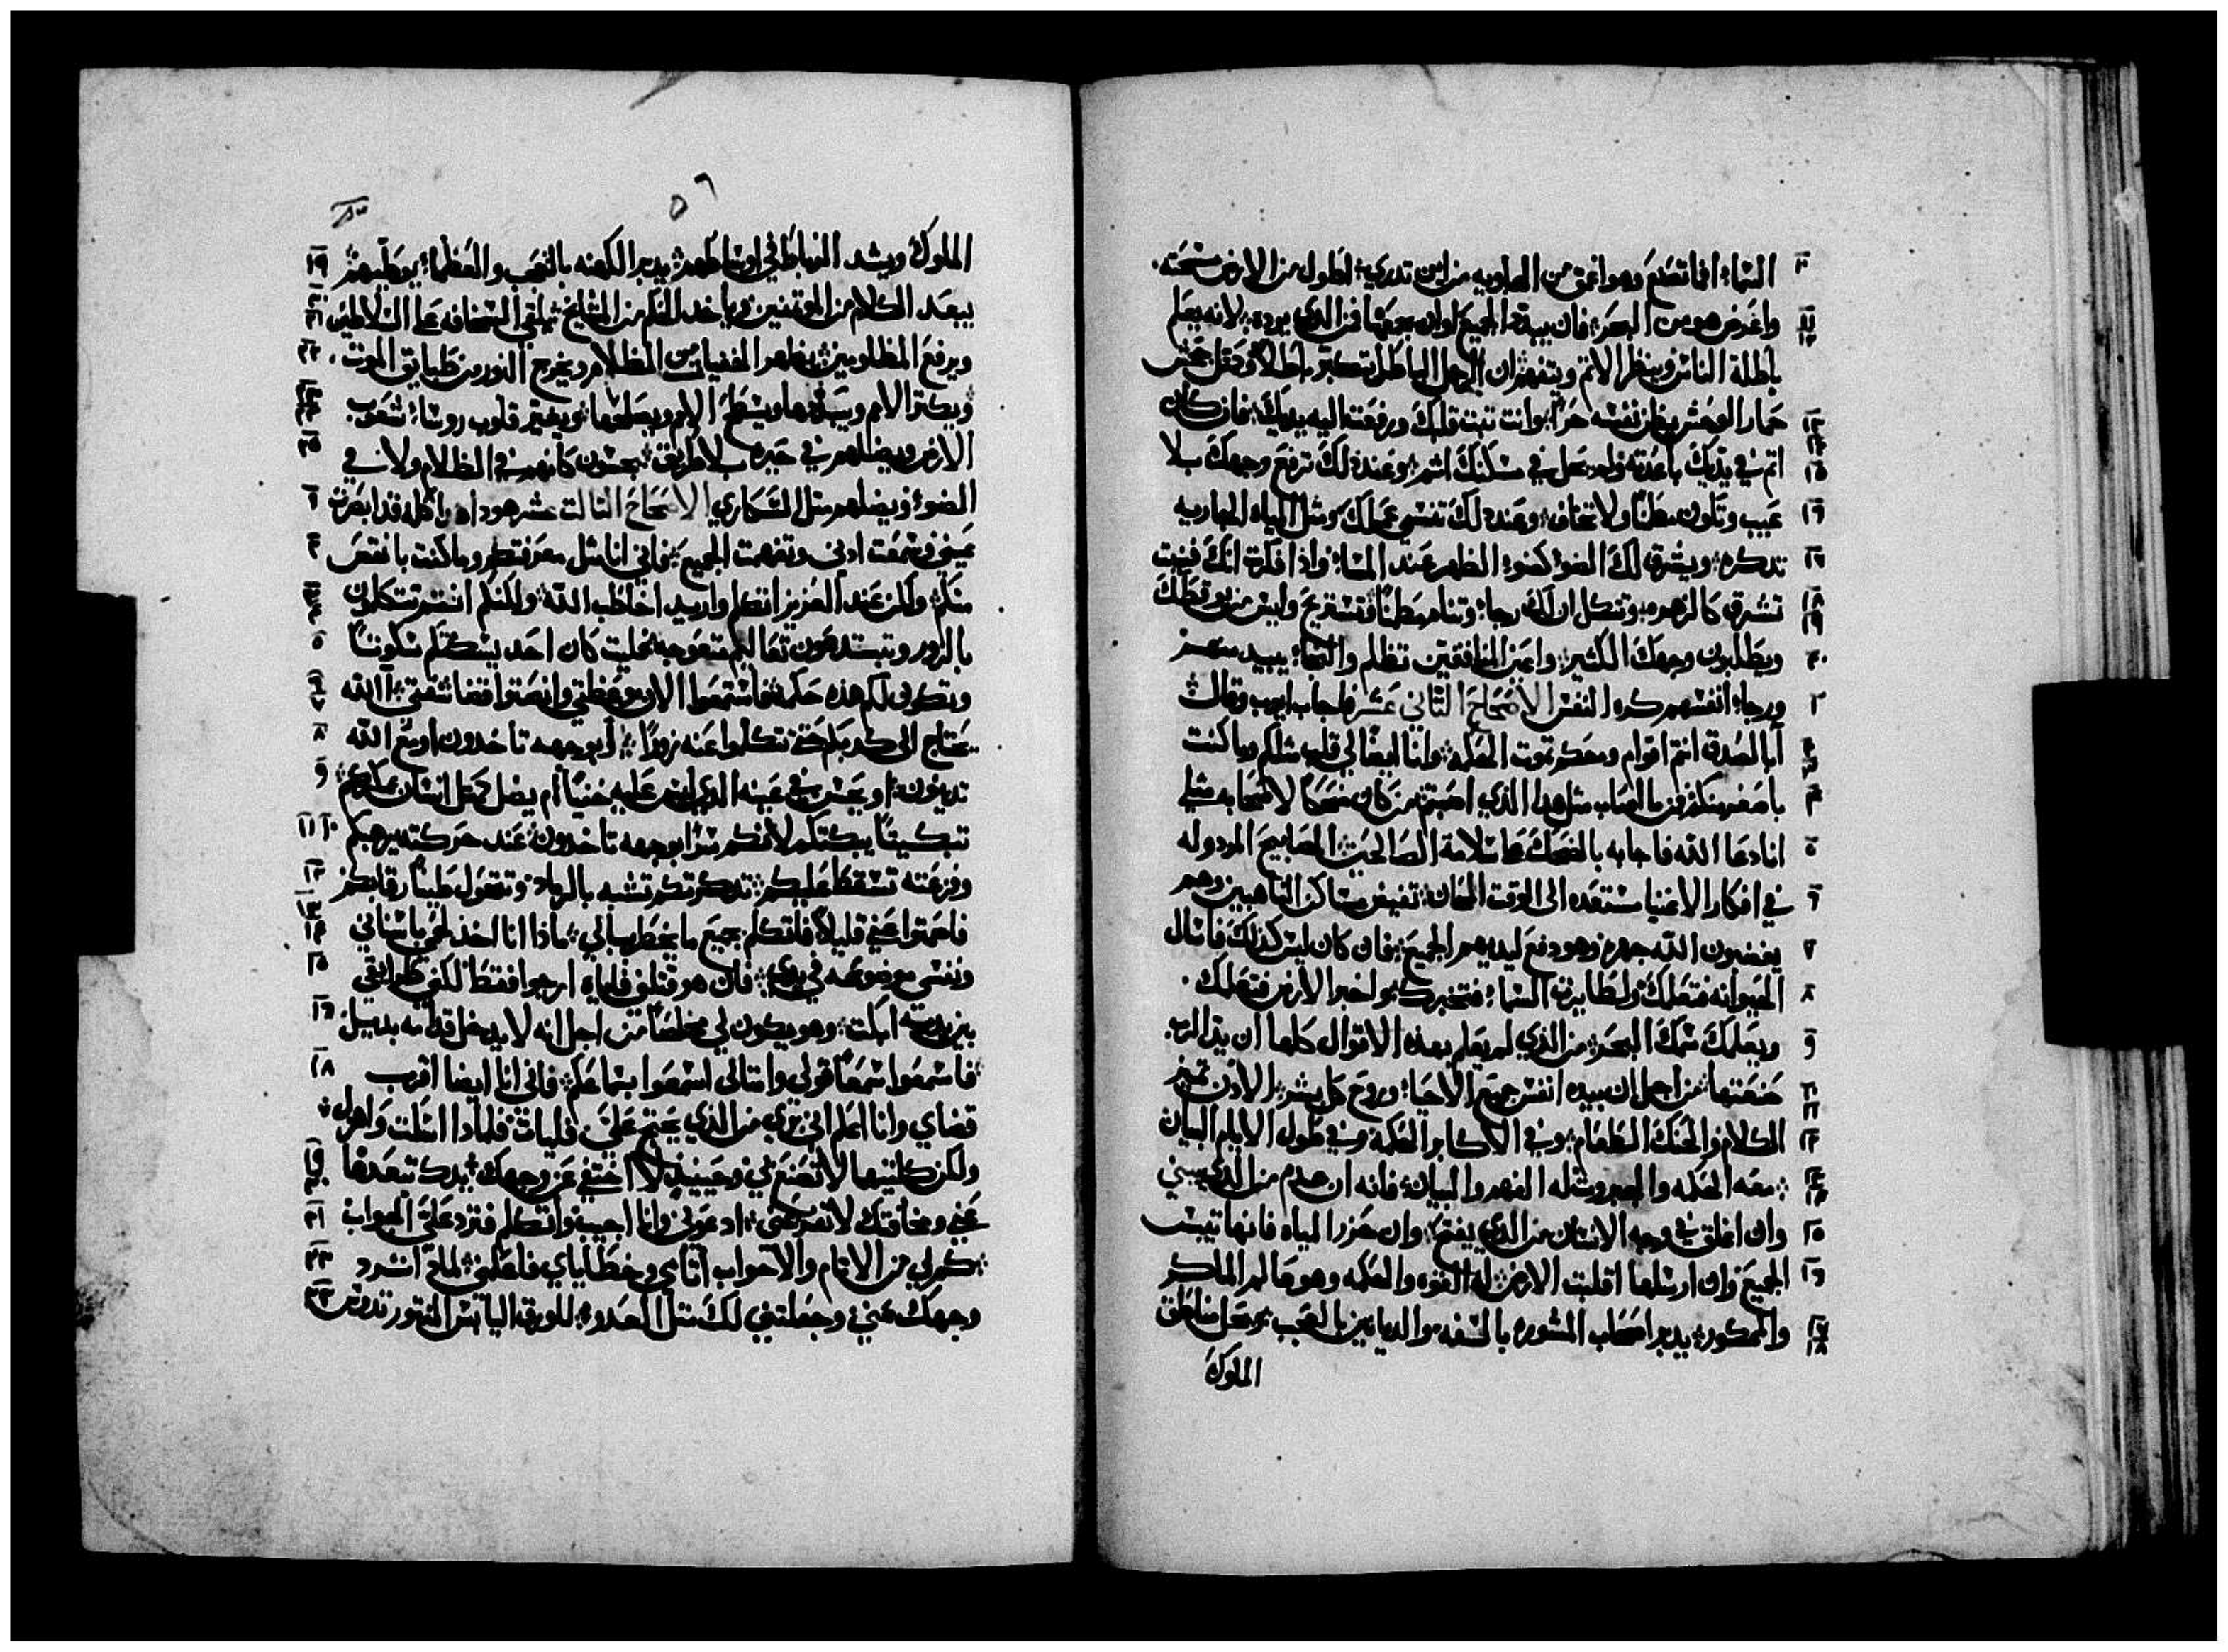 السماء افما تصنع وهو اعمق من الهاويه من اين تدري اطول من الارض مسحته.
واعرض هو من البحر فان يبيد الجميع اوان يجمعها فمن الذي يرده لانه يعلم
باطلة الناس وينظر الاتم ويتفهم ان الرجل الباطل يتكبر باطلا وكمثل جحش
حمار الوحش يظن نفسه حرا وانت تبت قلبك ورفعت اليه يديك فان كان
اتم في يديك باعدته ولم يحل في مسكنك اتم وعند ذلك ترفع وجهك بلا
عيب وتكون معلنا ولا تخاف وعند ذلك تنسي عملك ومثل المياه الجاريه
تدكره ويشرق لك الضو كضوء الظهر عند المساء واذا فكرت انك فنيت
تشرق كالزهره وتتكل ان لك رجاء وتنام مطمئنا وتستريح وليس من يوقظك
ويطلبون وجهك الكثير واعين المنافقين تظلم والنجاء يبيد منهم
ورجاء انفسهم كره النفس الاصحاح التاني عشر فاجاب ايوب وقال
أبا الصدق انتم اقوام ومعكم تموت الحكمه وانا ايضا لي قلب مثلكم وما كنت
باصغر منكم فمن ما اصاب مثل هذا الذي اصبتم من كان ضحكا لاصحابه مثلي
انا دعا الله فاجابه بالضحك على سلامة الصالحين المصابيح المردوله
في افكار الاغنيا مستعده الى الوقت المحان تفيض مساكن الناهبين وهم
يغضبون الله جهره وهو دفع ليديهم الجميع فان كان ليس كذلك فاسال
الحيوانه فتعلمك ولطايرة السماء فتخبرك او اخبر الارض فتعلمك.
ويعلمك سمك البحر من الذي لم يعلم بهذه الاقوال كلها ان يد الرب
صنعتها من اجل ان بيده انفس جميع الاحياء وروح كل بشر الادن تميز
الكلام والحنك الطعام وفي الاكابر الحكمه وفي طول الايام البيان
معه الحكمه والجبروت له الفهم والبيان فانه ان هدم من الذي يبني
وان اغلق في وجه الانسان من الذي يفتح وان حزر المياه فانها تيبس
الجميع وان ارسلها اقلبت الارض له القوه والحكمه وهو عالم الماكر
والممكور يدبر اصحاب المشوره بالسفه والديانين بالعجب يحل مناطق
الملوك
٥٦
الملوك ويشد الرباط في اوساطهم يدبر الكهنه بالعجب والعظماء يوطيهم
يبعد الكلام من المومنين وياخد الفهم من المشايخ يلقي السخافه على السلاطين
ويرفع المظلومين يظهر الخفيات من الظلام ويخرج النور من طبايق الموت.
ويكتر الامم ويبيدها ويسطح الامم ويصلحها ويغير قلوب روساء شعوب
الارض ويضلهم في حيره بلا طريق يجسون كانهم في الظلام ولا في
الضوء ويضلهم متل السكاري الاصحاح التالت عشر هودا هده كلها قد ابصرت
عيني وسمعت ادني وتفهمت الجميع فاني انا مثل معرفتكم وما كنت بانقص
منكم ولكن عند العزيز اتكلم واريد اخاطب الله ولكنكم انتم تتكلون
بالزور وتبتدعون تعاليم متعوجه فليت كان احد يسكتكم سكوتا
وتكون لكم هذه حكمه فاستمعوا الان موعظتي وانصتوا قضا شفتي االله
يحتاج الى كدبكم حتي تتكلموا عنه زورا ابوجهه تاخدون او مع الله
تدينون او يحسن في عينه الذي ليس عليه خفيا ام يضل كمثل انسان بمكركم
تبكيتا يبكتكم لانكم سرا بوجهه تاخدون عند حركته يرهبكم
وفزعته تسقط عليكم تدكرتكم تشبه بالرماد وتتحول طينا رقابكم
فاصمتوا عني قليلا فاتكلم بجميع ما يخطر ببالي ماذا انا اخد لحمي باسناني
ونفسي موضوعه في يدي فان هو قتلني فاياه ارجوا فقط لكني طرايقي
بين يديه ابكت وهو يكون لي مخلصا من اجل انه لا يدخل قدامه بديل
فاسمعوا سمعا قولي وامتالي اسمعوا بسماعكم فاني انا ايضا اقرب
قضاي وانا اعلم اني بري من الذي يحتج علي فليات فلماذا اسكت واهول
ولكن كلتيهما لا تصنع لي وحينيد لا اختفي عن وجهك يدك تبعدها
عني ومخافتك لا تفزعني ادعوني وانا اجيب واتكلم فترد علي الجواب
كم لي من الاتام والاحواب اتامي وخطاياي فاعلمني لماذا تسرد
وجهك عني وجعلتني لك متل العدو للورقه اليابس المنتور تدرس